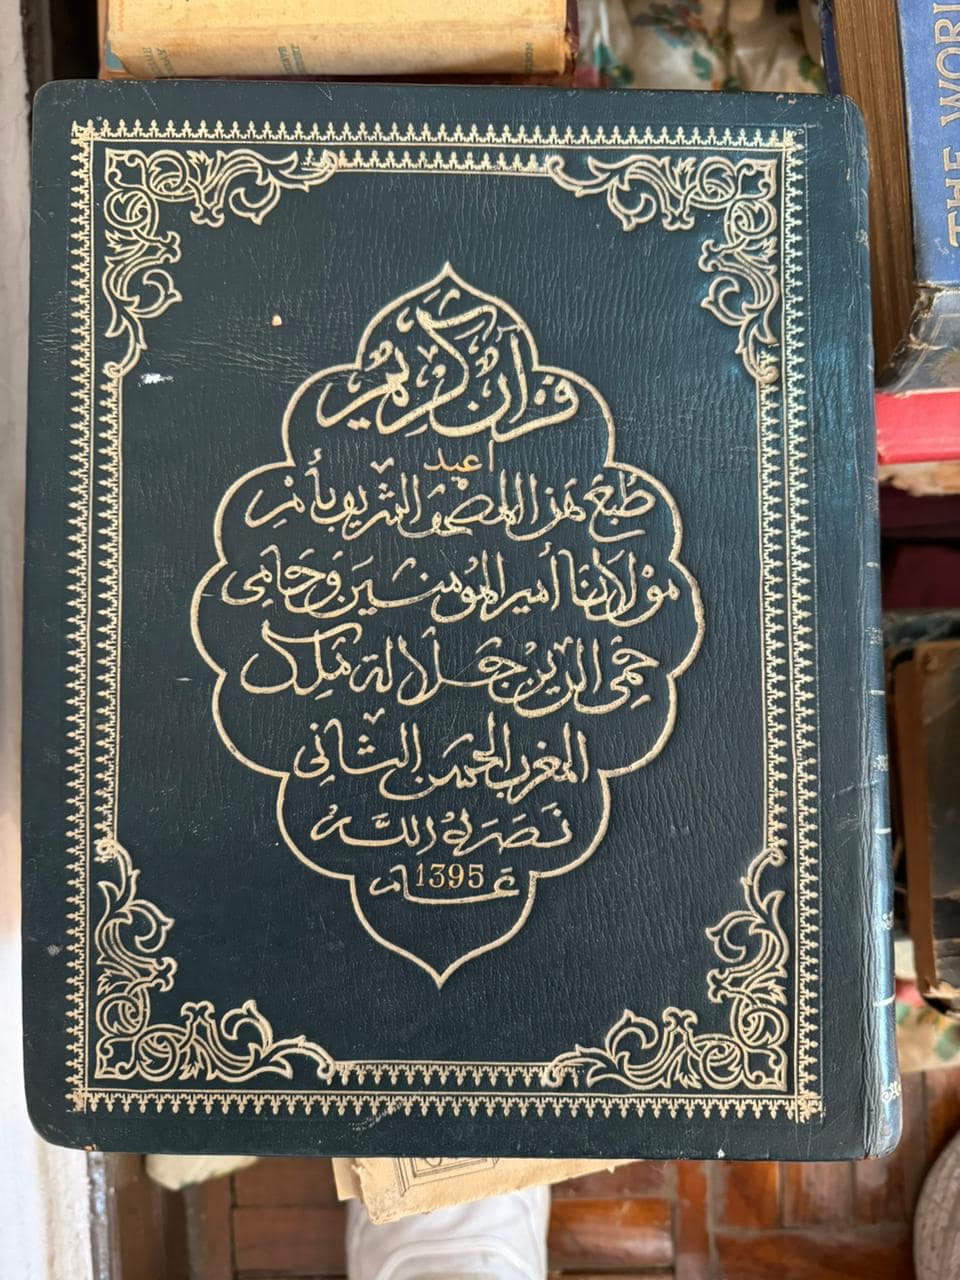 THE WORL
قرآن كريم
أعيد
طبع هذا المصحف الشريف بأمر
مولانا أمير المؤمنين وحامي
حمى الدين جلالة ملك
المغرب الحسن الثاني
نصره الله
عام 1395